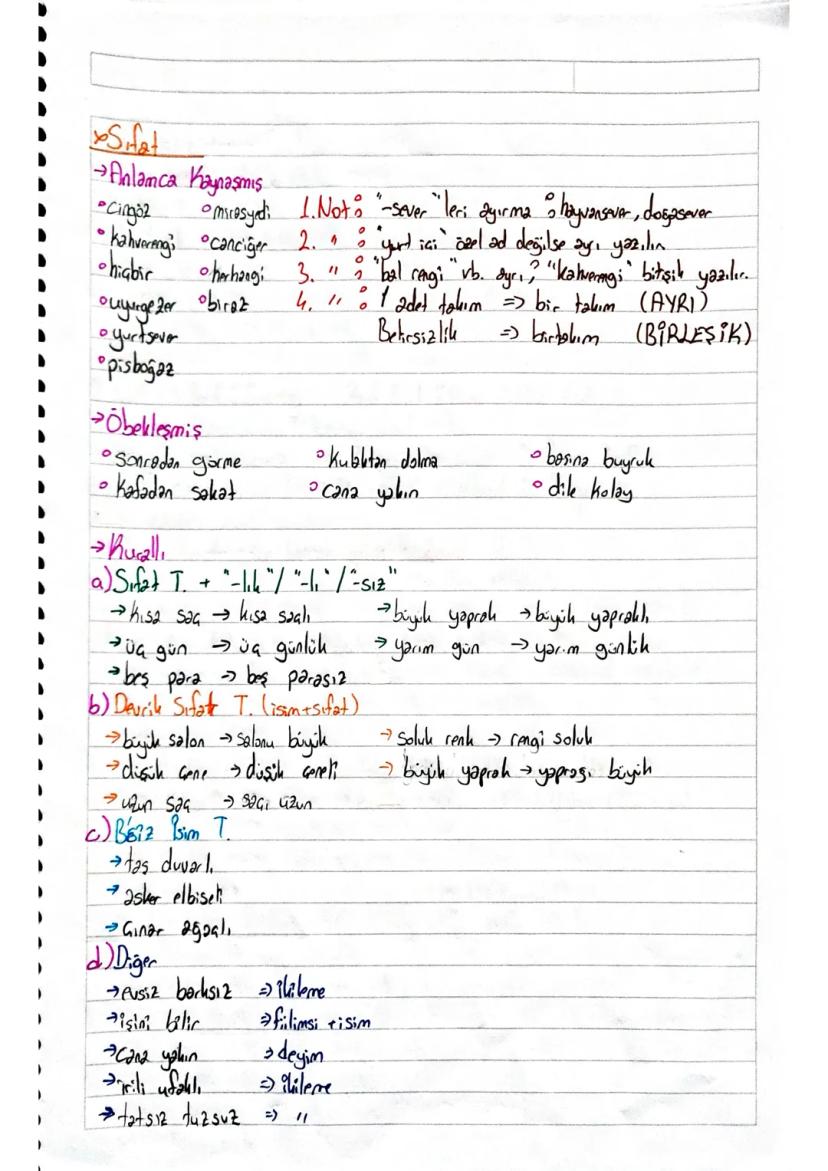 Sıfat
→Anlamca Kaynaşmış
cingöz mirasyedi 1.Not: "-sever"leri ayırma: hayvansever, doğasever
kahverengi canciğer 2. " : "yurt içi" özel ad değilse ayrı yazılır
hiçbir herhangi 3. " : "bal rengi" vb. ayrı; "kahverengi" bitişik yazılır.
uyurgezer biraz 4. " : 1 adet takım => bir takım (AYRI)
yurtsever Belirsizlik => birtakım (BİRLEŞİK)
pisboğaz
→Öbekleşmiş
sonradan görme kulaktan dolma başına buyruk
kafadan sakat cana yakın dile kolay
→Kurallı
a)Sıfat T. + "-lık"/"-lı"/"-sız"
→kısa saç → kısa saçlı →büyük yaprak →büyük yapraklı
→üç gün → üç günlük →yarım gün →yarım günlük
→beş para → beş parasız
b) Devrik Sıfat T. (isim+sıfat)
→büyük salon →salonu büyük →soluk renk → rengi soluk
→düşük çene →düşük çeneli → büyük yaprak →yaprağı büyük
→uzun saç → saçı uzun
c) B.siz İsim T.
→taş duvarlı
→asker elbiseli
→çınar ağaçlı
d)Diğer
→evsiz barksız => ikileme
→işini bilir →fiilimsi + isim
→cana yakın → deyim
→irili ufaklı => ikileme
→tatsız tuzsuz => "